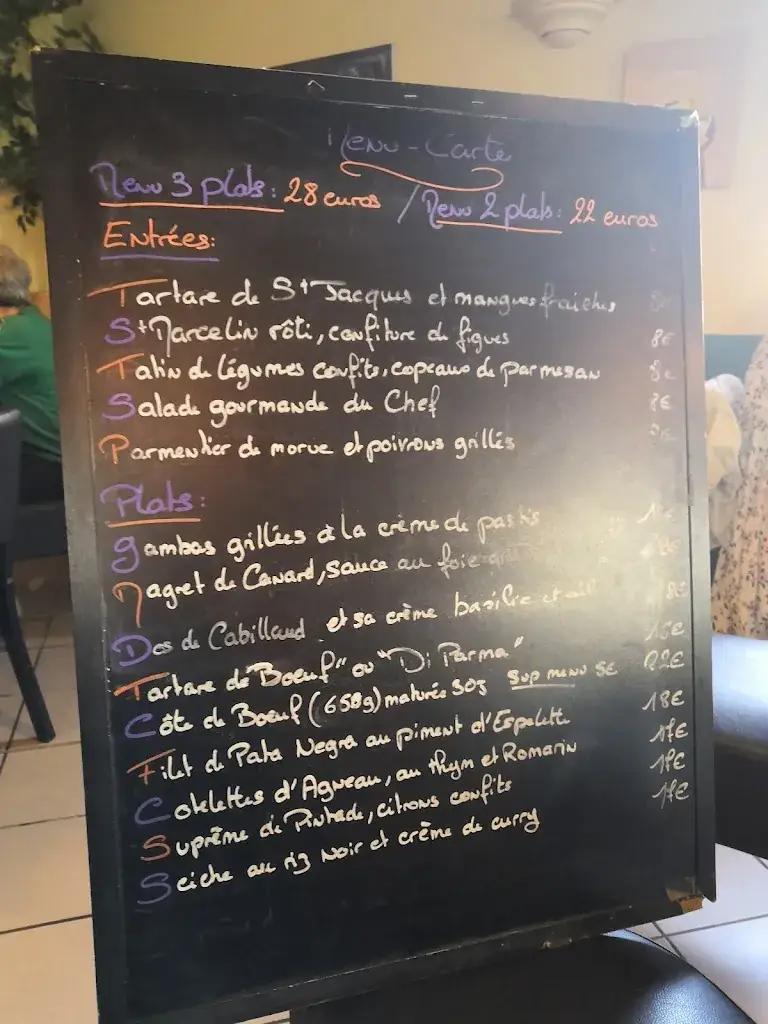 Menu-Carte
Menu 3 plats: 28 euros / Menu 2 plats: 22 euros
Entrées:
Tartare de St Jacques et mangues fraiches 8€
St Marcelin rôti, confiture de figues 8€
Tatin de légumes confits, copeaux de parmesan 8€
Salade gourmande du Chef 8€
Parmentier de morue et poivrons grillés 8€
Plats:
gambas grillées à la crème de pastis
Magret de Canard, sauce au foie gras
Dos de Cabillaud et sa crème basilic et ail 18€
Tartare de "Boeuf" ou "Di Parma" 16€
Côte de Boeuf (650g) maturée 30j Sup menu 5€ 22€
Filet de Pata Negra au piment d'Espelette 18€
Cotelettes d'Agneau, au thym et Romarin 17€
Suprême de Pintade, citrons confits 17€
Seiche au riz noir et crème de curry 17€